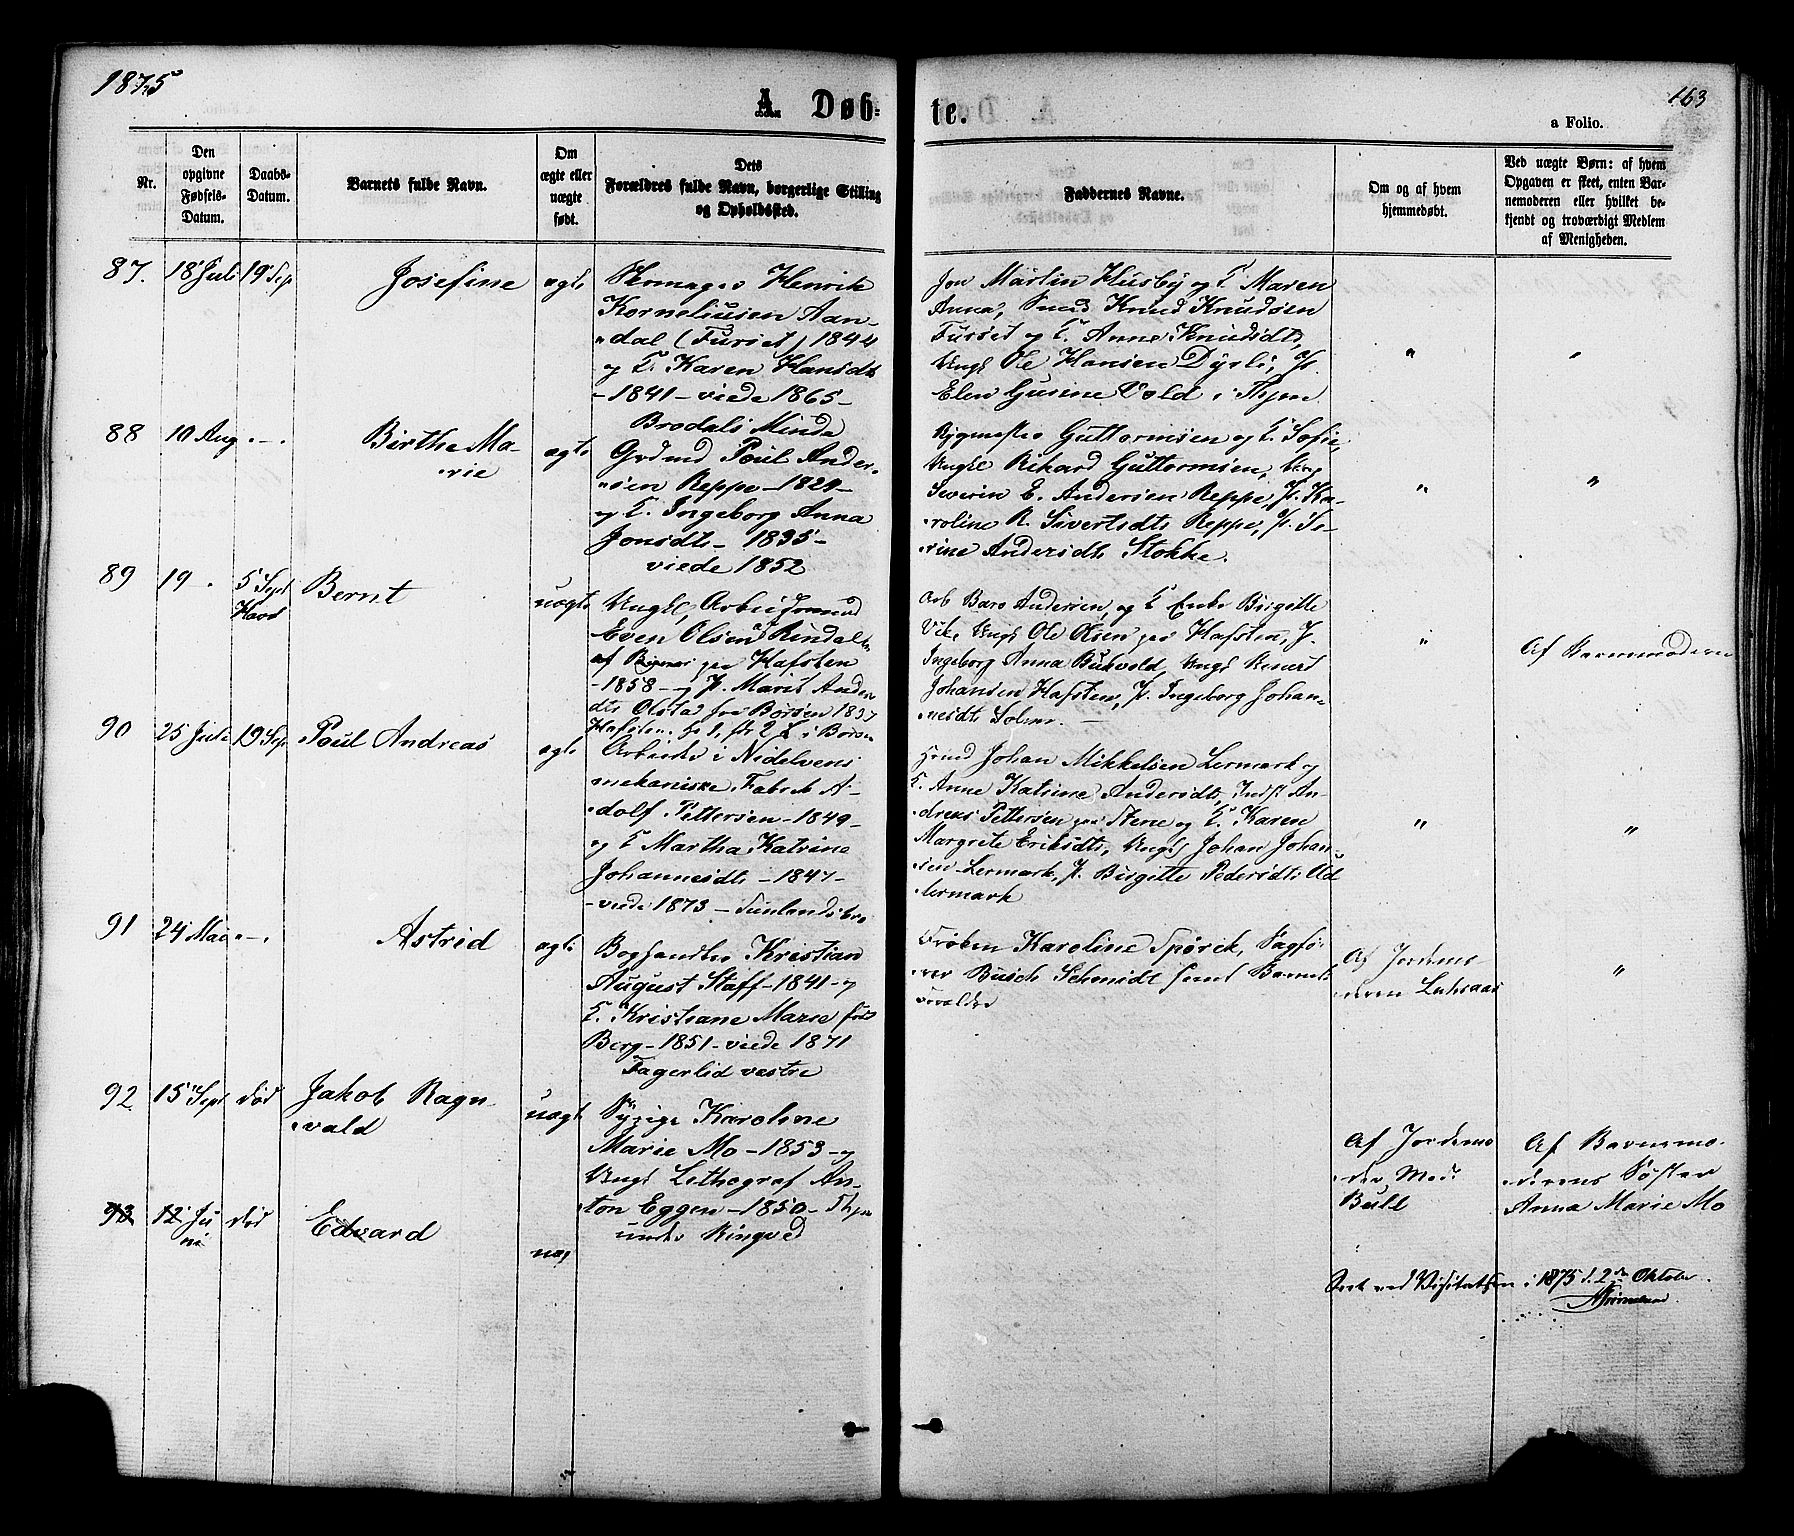 1875
163
A. Døb-
te.
a Folio.
Nr.
Den
opgivne
Fødsels-
Datum.
Daabs-
Datum.
Barnets fulde Navn.
Om
ægte eller
uægte
født.
Dets
Forældres fulde Navn, borgerlige Stilling
og Opholdssted.
Faddernes Navne.
Om og af hvem
hjemmedøbt.
Ved uægte Børn: af hvem
Opgaven er skeet, enten Bar-
nemoderen eller hvilket be-
kjendt og troværdigt Medlem
af Menigheden.
87. 18 Juli 19 Sep Josefine ægte
Skomager Henrik
Korneliusen Aan-
dal (Furset) 1844
og K. Karen Hansdt
- 1841 - viede 1865 -
Brodals Minde
Jon Martin Husby og K. Maren
Anna, Smed Knud Knudsen
Furset og K. Anne Knudsdt,
Ungk Ole Hansen Dyrli, P.
Elen Gusine Vold i Thjen
" "
88 10 Aug - Birthe Ma-
rie ægte
Grdmd Poul Ander-
sen Reppe - 1829 -
og K. Ingeborg Anna
Jonsdt - 1835 -
viede 1852
Guttormsen og K. Sofie,
Ungk Rikard Guttormsen,
Severin E. Andersen Reppe, P. Ka-
roline R. Sivertsdt Reppe, P. Se-
rine Andersdt Stokke.
" "
89 19 - 5 Sept Bernt uægte
Ungk,
Even Olsen Rindal
paa Hafsten
- 1858 - og P. Marit Anders
dt Olstad fra Børsen 1837
Hafsten. i Børsen
Arb Baro Andersen, og K Enke Birgitte
Vik, Ungk Ole Olsen paa Hafsten, P.
Ingeborg Anna Bukvold, Ungk
Johansen Hafsten, P. Ingeborg Johan-
nesdt
"
Af Barnemoderen
90 25 Juli 19 Sep Poul Andreas ægte
Arbeider i Nidelvens
mekaniske Fabrik A-
dolf Pettersen - 1849 -
og K Martha Katrine
Johannesdt - 1847 -
- viede 1873 -
Johan Mikkelsen Lermark og
K. Anne Katrine Andersdt, Indst An-
dreas Pettersen paa Stene og K. Karen
Margrete Eriksdt, Ungk Johan Johan-
sen Lermark, P. Birgitte Pedersdt
Lermark
" "
91 24 Mai - Astrid ægte
Boghandler Kristian
August Staff - 1841 - og
K. Kristiane Marie født
Berg - 1851 - viede 1871
Fagerlid vestre
Frøken Karoline Spørck, Sagfø-
rer Busch Schmidt samt Barnets
Forældre
Af Jordemo
deren
"
92 15 Sept død Jakob Ragn-
vald uægt
Sypige Karoline
Marie Mo - 1853 - og
Ungk Lithograf An-
ton Eggen - 1850 -
under Ringved
Af Jordemo
der Mad
Bull
Af Barnemo-
derens Søster
Anna Marie Mo
93 12 Ju
ni død Edvard uæg
Seet ved Visitatsen i 1875 d. 2den Oktober.